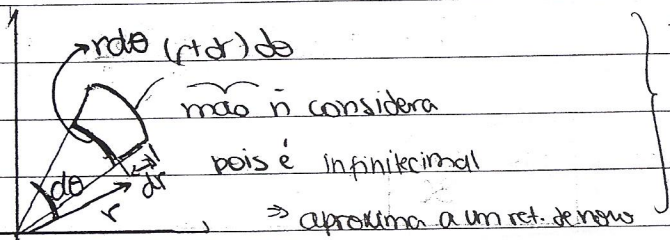 rdθ (r+dr)dθ
não ñ considera
pois é infinitecimal
dθ r dr
⇒ aproxima a um ret. de novo